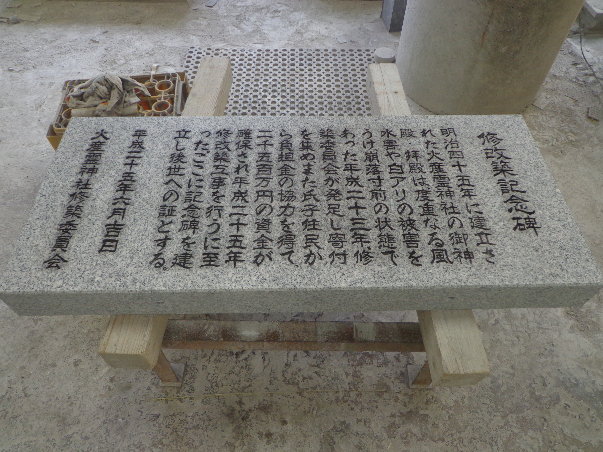 修改築記念碑
明治四十五年に建立さ
れた火産霊神社の御神
殿、拝殿は度重なる風
水害や白アリの被害を
うけ崩落寸前の状態で
あった平成二十三年修
築委員会が発足し寄付
を集めまた氏子住民か
ら負担金の協力を得て
二千五百万円の資金が
確保され平成二十五年
修改築工事を行うに至
ったここに記念碑を建
立し後世への証とする。
平成二十五年六月吉日
火産霊神社修築委員会